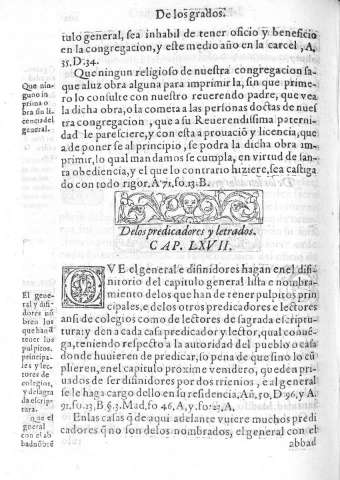 De los grados.
tulo general, sea inhabil de tener oficio y beneficio
en la congregacion, y este medio año en la carcel, A,
35. D. 34.
Que ningun religioso de nuestra congregacion sa-
que a luz obra alguna para imprimir la, sin que prime-
ro lo consulte con nuestro reuerendo padre, que vea
la dicha obra, o la cometa a las personas doctas de nues
tra congregacion, que a su Reuerendissima paterni-
dad le paresciere, y con esta aprouaciõ y licencia, que
a de poner se al principio, se podra la dicha obra im-
primir, lo qual mandamos se cumpla, en virtud de san-
ta obediencia, y el que lo contrario hiziere, sea castiga
do con todo rigor. A 71, fo. 13. B.
Que nin-
guno in-
prima o
bra sin li-
cencia del
general.
De los predicadores y letrados.
CAP. LXVII.
QVE el general e difinidores hagan en el difi-
nitorio del capitulo general lista e nombra-
miento de los que han de tener pulpitos prin
cipales, e de los otros predicadores e lectores
ansi de colegios como de lectores de sagrada escrip-
tura: y den a cada casa predicador y lector, qual conuē-
ga, teniendo respecto a la autoridad del pueblo o casa
donde huuieren de predicar, so pena de que sino lo cũ
plieren, en el capitulo proximo venidero, queden pri-
uados de ser difinidores por dos trienios, e al general
se le haga cargo dello en su residencia, Añ, 50, D 96, y A.
92. fo. 23, B. §. 3. Mad. fo 46, A, y. fo. 23, A.
En las casas q̃ de aqui adelante vuiere muchos predi
cadores q̃ no son delos nombrados, el general con el
abbad
El gene-
ral y difi-
dores nõ
bren los
que han d̃
tener los
pulpitos.
principa-
les y lec-
tores de
colegios,
y de sagra
da escrip-
tura.
general
con el ab